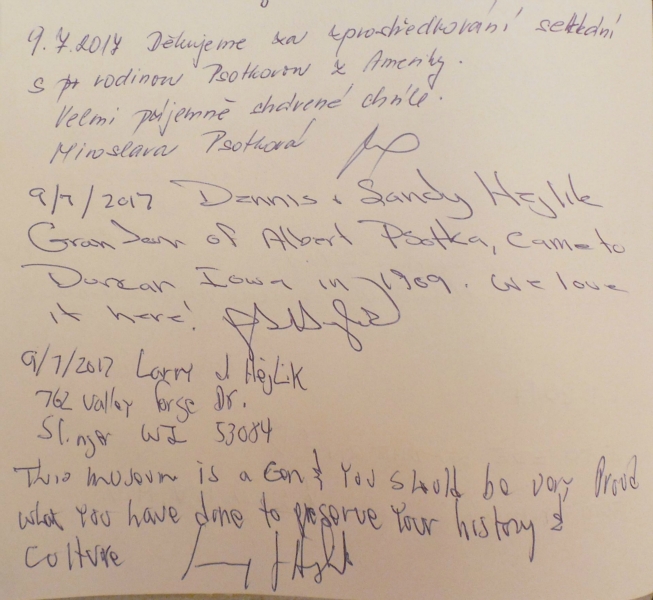 9.7.2017 Děkujeme za zprostředkování setkání
s rodinou Psotkovou z Ameriky.
Velmi příjemně strávené chvíle.
Miroslava Psotková
9/7/2017 Dennis & Sandy Hejlik
Grandson of Albert Psotka, came to
Duncan Iowa in 1909. We love
it here!
9/7/2017 Larry J Hejlik
762 Valley Forge Dr.
Slinger WI 53084
This museum is a Gem & You should be very Proud
what You have done to preserve Your history &
Culture